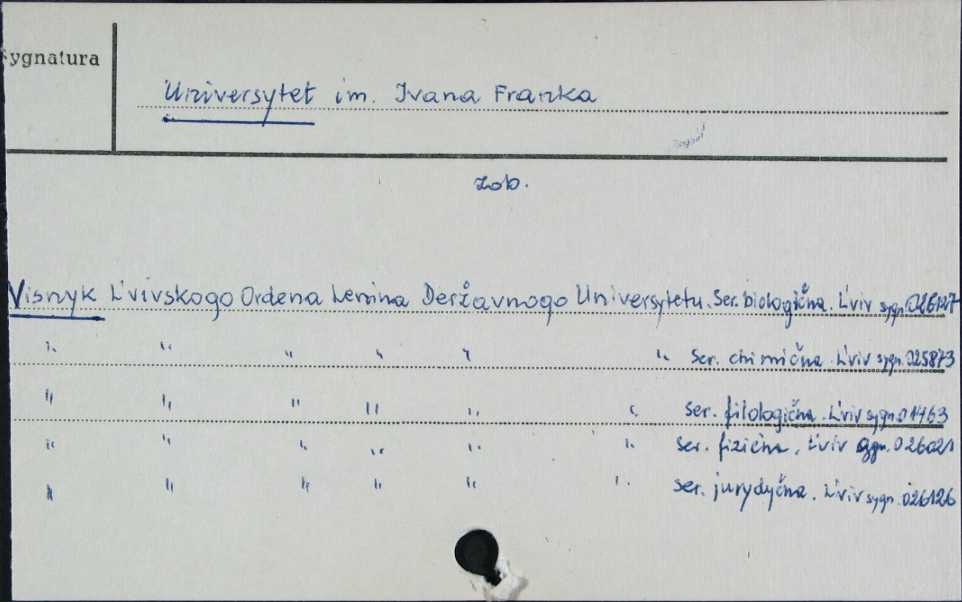 Sygnatura
Universytet im. Ivana Franka
Zob.
Visnyk L'vivskogo Ordena Lenina Deržavnogo Universytetu. Ser. biologična. L'viv sygn. 026127
" " " " " " Ser. chimična. L'viv sygn. 025873
" " " " " " Ser. filologična. L'viv sygn. 01463
" " " " " " Ser. fizična. L'viv sygn. 026021
" " " " " " Ser. jurydyčna. L'viv sygn. 026126